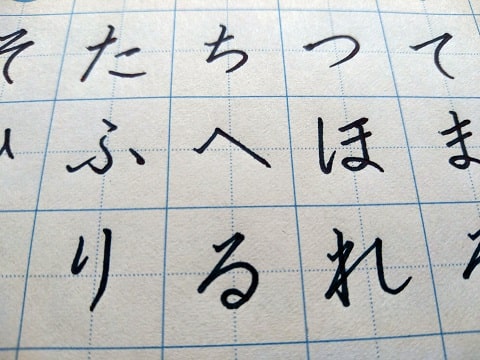 そたちつて
ふへほま
りるれ